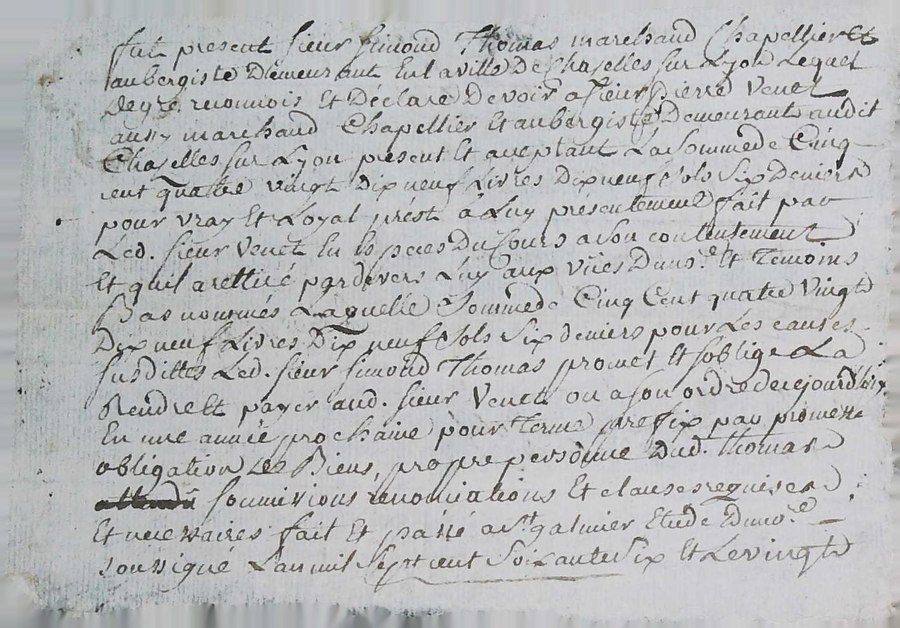 fut present sieur simond Thomas marchand Chapellier Et
aubergiste Demeurant En la ville De chaselles sur Lyon Lequel
De gré reconnois Et Déclare Devoir a sieur pierre Venet
aussy marchand Chapellier Et aubergiste Demeurant audit
Chaselles sur Lyon present Et aceptant La somme de Cinq
cent quatre vingt Dix neuf Livres Dix neuf sols six Deniers
pour vray Et Loyal prést à Luy présentement fait par
Led. sieur Venet En Especes Du Cours a son contentement
Et quil a rettiré par devers Luy aux vües Du no.re Et Temoins
Bas nommés Laquelle Somme de Cinq Cent quatre Vingt
Dix neuf Livres Dix neuf sols six deniers pour Les causes
susdittes Led. sieur simond Thomas promet Et soblige La
Rendre Et payer aud. sieur Venet ou a son ordre de cejourd'huy
En une année prochaine pour Terme prefix par promesse
obligation de Biens, propre personne Dud. Thomas
soumissions renonciations Et clauses requises
Et necessaires fait Et passé a St galmier Etude Du no.re
soussigné Lan mil sept cent soixante six Et Le vingt